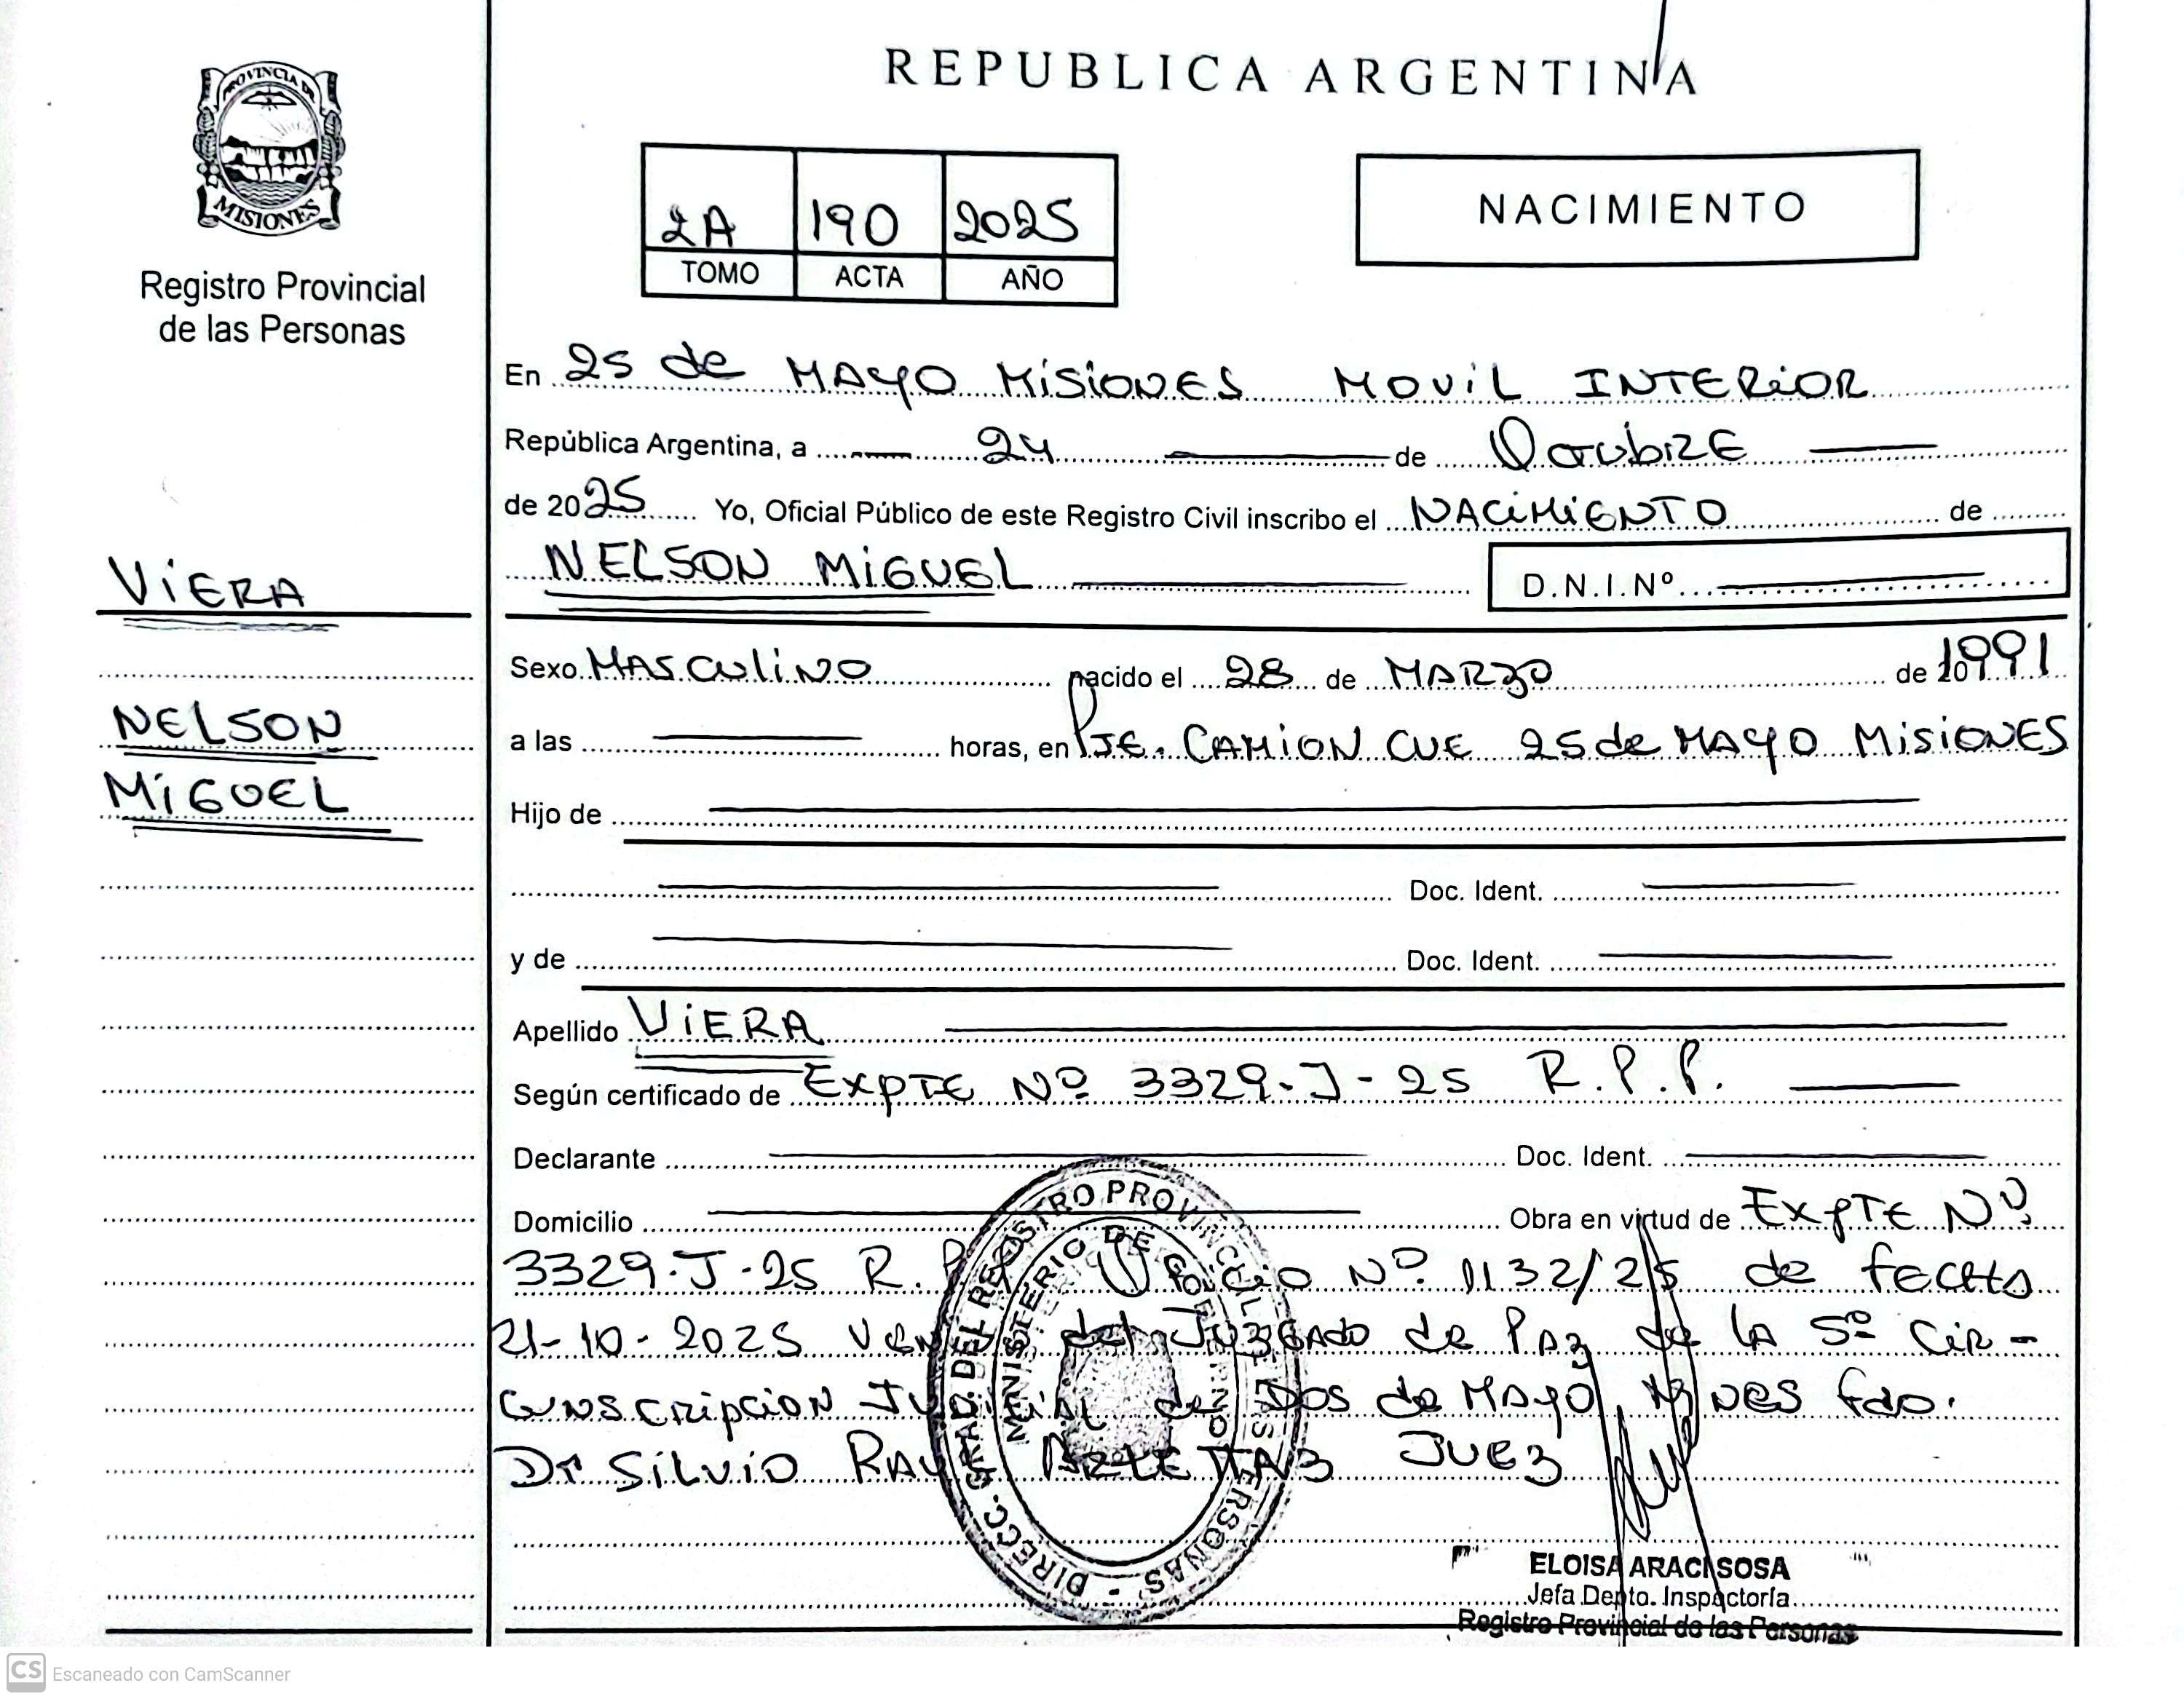 REPUBLICA ARGENTINA
PROVINCIA DE
MISIONES
Registro Provincial
de las Personas
2A 190 2025
TOMO ACTA AÑO
NACIMIENTO
En 25 de MAYO MisiONES MOViL INTERiOR
República Argentina, a 24 de Octubre
de 2025 Yo, Oficial Público de este Registro Civil inscribo el NACiMiENTO de
NELSON MiGUEL D.N.I.Nº
ViERA
NELSON
MiGUEL
Sexo MASCuliNO nacido el 28 de MARZO de 201991
a las horas, en PJE. CAMION CUE 25 de MAYO MisiONES
Hijo de
Doc. Ident.
y de Doc. Ident.
Apellido ViERA
Según certificado de EXPTE Nº 3329-J-25 R.P.P.
Declarante Doc. Ident.
Domicilio Obra en virtud de EXPTE Nº
3329-J-25 R. Oficio Nº 1132/25 de fecha
21-10-2025 del Juzgado de PAZ de LA 5º Cir-
cunscripcion Judicial de Dos de Mayo, Mnes fdo.
Dr Silvio RAUL JUEZ
DIRECC. GRAL. DEL REGISTRO PROVINCIAL PERSONAS
MINISTERIO DE GOBIERNO
ELOISA ARACI SOSA
Jefa Depto. Inspectoría
Registro Provincial de las Personas
CS Escaneado con CamScanner